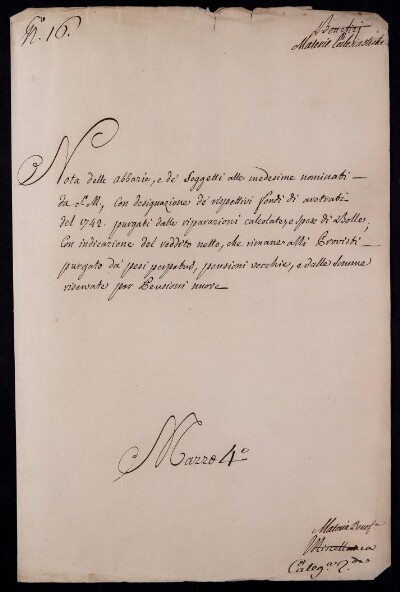 N.º 16.
Benefizj
Materie Ecclesiastiche
Nota delle abbazie, e de' Soggetti alle medesime nominati
da S. M., con designazione de' rispettivi fondi di
del 1742. purgati dalle riparazioni calcolate, e spese di Bolle,
Con indicazione del reddito netto, che rimane alli Provisti
purgato da' pesi perpetui, pensioni vecchie, e dalle somme
riservate per Pensioni nuove
Mazzo 4º
Materia Benef.
Miscellanea
Categ.ª